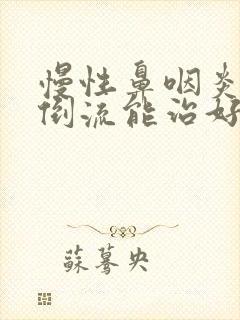 慢性鼻咽炎
倒流能治好
蘇驀央